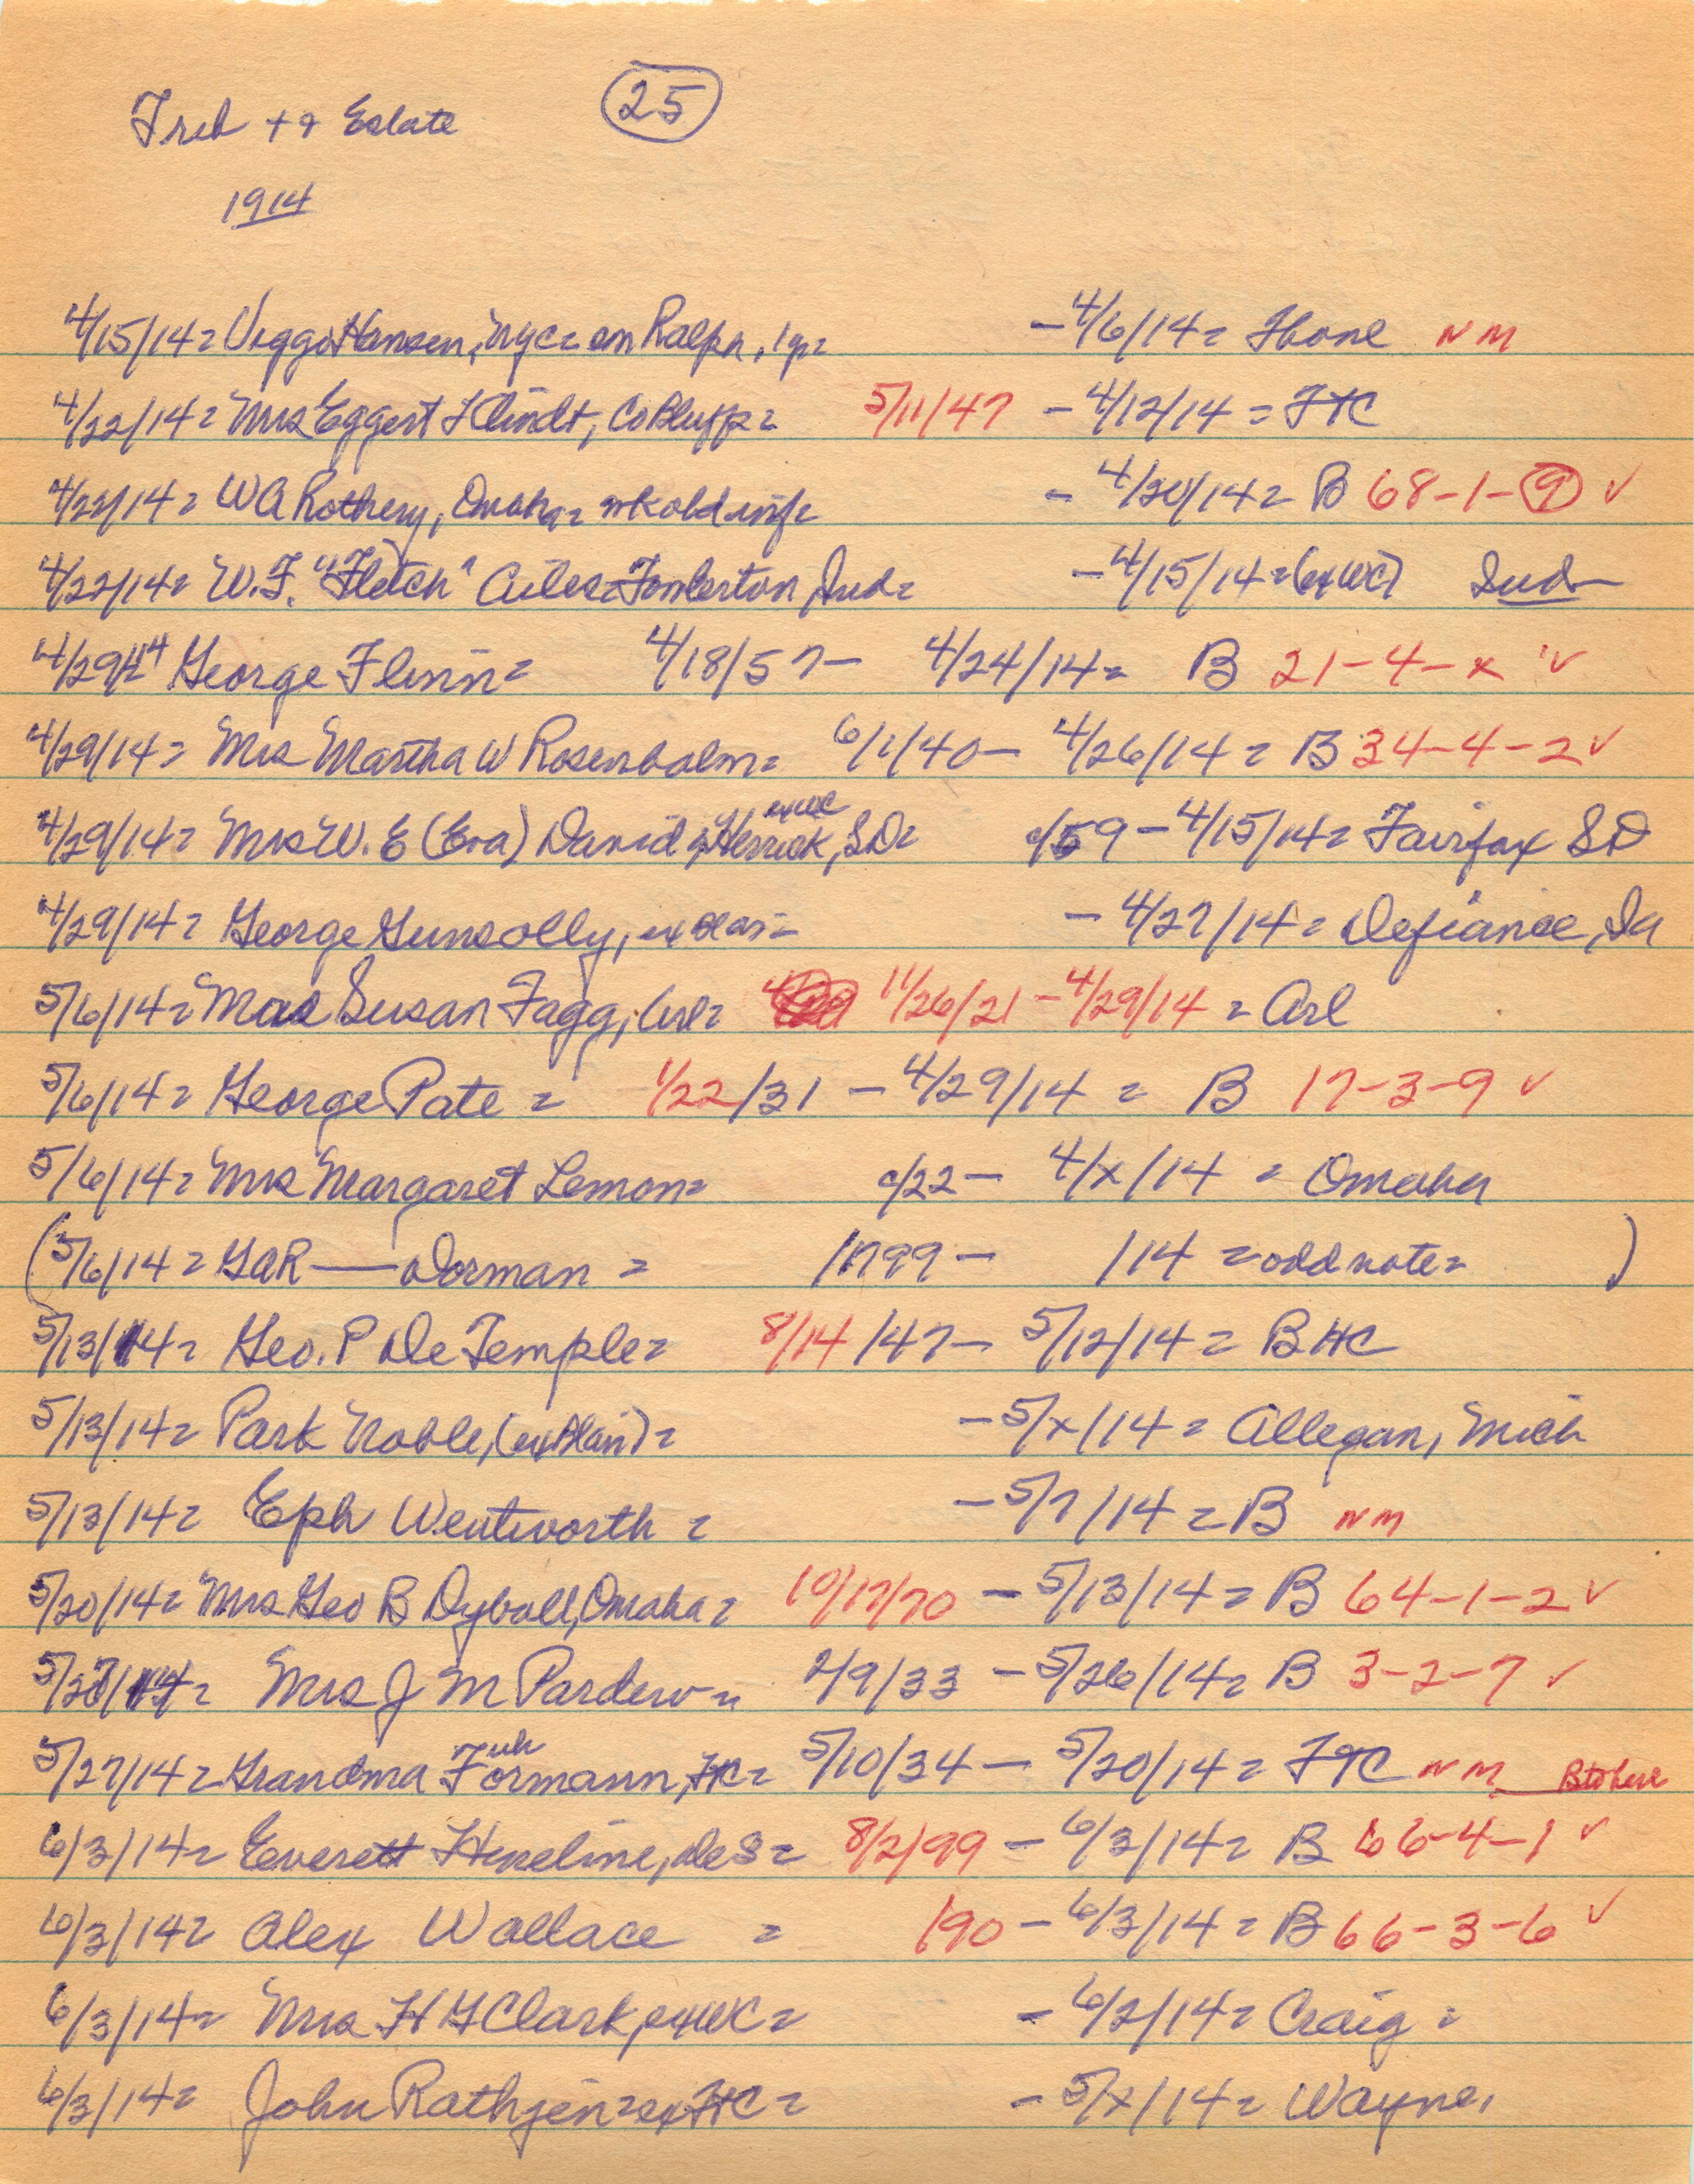 Trib ++ Estate (25)
1914
4/15/14= Viggo Hansen, nyc= on Ralph, 1 yr= -4/6/14= Home NM
4/22/14= Mrs Eggert Flindt, Co Bluffs= 5/11/47 -4/12/14= FTC
4/22/14= WA Rothery, Omaha= - 4/20/14= B 68-1-(9) ✓
4/22/14= W.F. "Fletch" Ailes= Fowlerton, Ind= -4/15/14=(exWC) Ind
4/29/14 George Flinn= 4/18/57- 4/24/14= B 21-4-x ✓
4/29/14= Mrs Martha W Rosenbalm= 6/1/40- 4/26/14= B 34-4-2 ✓
4/29/14= Mrs W. E (Eva) David, Herrick, SD= exWC c/59-4/15/14= Fairfax SD
4/29/14= George Gunsolly, -4/27/14= Defiance, Ia
5/6/14= Mrs Susan Fagg, Arl= 11/26/21-4/29/14= Arl
5/6/14= George Pate= 1/22/31-4/29/14= B 17-3-9 ✓
5/6/14= Mrs Margaret Lemon= c/22- 4/x/14= Omaha
(5/6/14= GAR—Dorman= /1799- /14 = odd note= )
5/13/14= Geo. P De Temple= 8/14/47- 5/12/14= BHC
5/13/14= Park Noble, (exBlair)= -5/x/14= Allegan, Mich
5/13/14= Eph Wentworth= -5/7/14= B NM
5/20/14= Mrs Geo B Dyball, Omaha= 10/17/70 -5/13/14= B 64-1-2 ✓
5/27/14= Mrs J M Pardew= 2/9/33 -5/26/14= B 3-2-7 ✓
5/27/14= Grandma Formann, FTC= uh 5/10/34- 5/20/14= FTC NM
6/3/14= Everett Hineline, deS= 8/2/99 -6/3/14= B 66-4-1 ✓
6/3/14= Alex Wallace= /90-6/3/14= B 66-3-6 ✓
6/3/14= Mrs H G Clark, exWC= -6/2/14= Craig=
6/3/14= John Rathjen= exFTC= -5/x/14= Wayne,